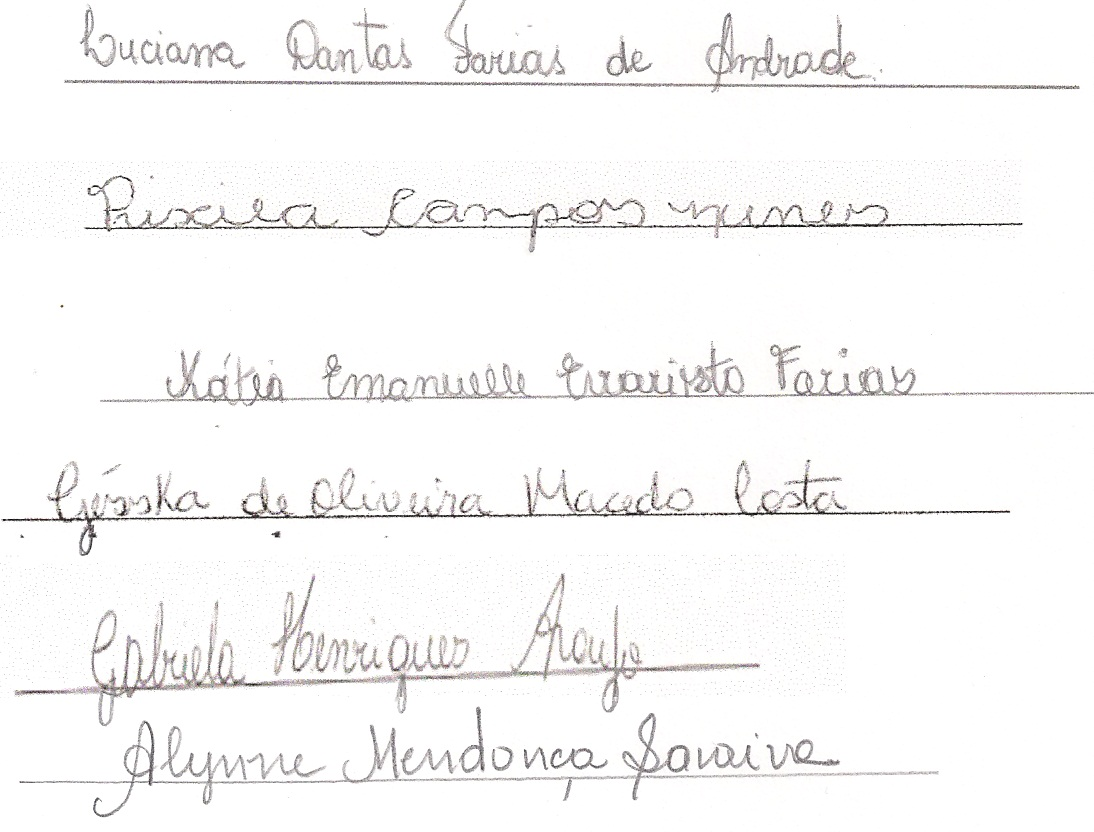 Luciana Dantas Farias de Andrade.
Priscila Campos Nunes
Kátia Emanuelle Evaristo Farias
Gésska de Oliveira Macedo Costa
Gabriela Henriques Araujo
Alynne Mendonça Saraiva